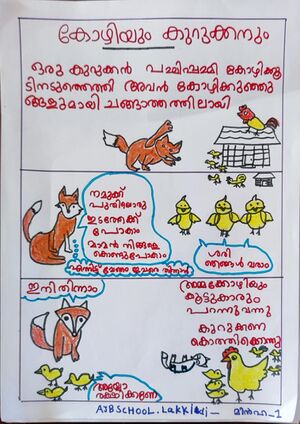 കോഴിയും കുറുക്കനും
ഒരു കുറുക്കൻ പമ്മിപ്പമ്മി കോഴിക്കൂ
ടിനടുത്തെത്തി അവൻ കോഴിക്കുഞ്ഞു
ങ്ങളുമായി ചങ്ങാത്തത്തിലായി
നമുക്ക്
പുതിയൊരു
ഇടത്തേക്ക്
പോകാം
മാമൻ നിങ്ങളെ
കൊണ്ടുപോകാം
എന്നിട്ട് വേണം ഇവറെ തിന്നാൻ
ശരി
ഞങ്ങൾ വരാം
ഇനി തിന്നാം
അയ്യോ
രക്ഷിക്കണേ
അമ്മക്കോഴിയും
കൂട്ടുകാരും
പറന്നുവന്നു
കുറുക്കനെ
കൊത്തിക്കൊന്നു
AJBSCHOOL. Lakkidi – മിൻഹ - 1